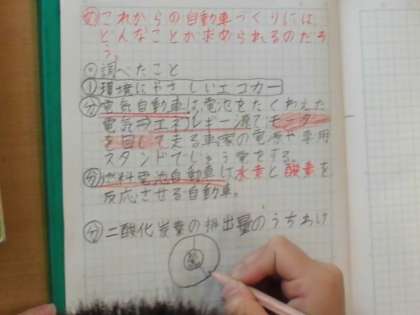 これからの自動車づくりには
どんなことが求められるのだろ
う。
調べたこと
①環境にやさしいエコカー
電気自動車は電池をたくわえた
電気をエネルギー源でモーター
を回して走る車家の電源や専用
スタンドでじゅう電をする。
燃料電池自動車は水素と酸素を
反応させる自動車。
二酸化炭素の排出量のうちわけ